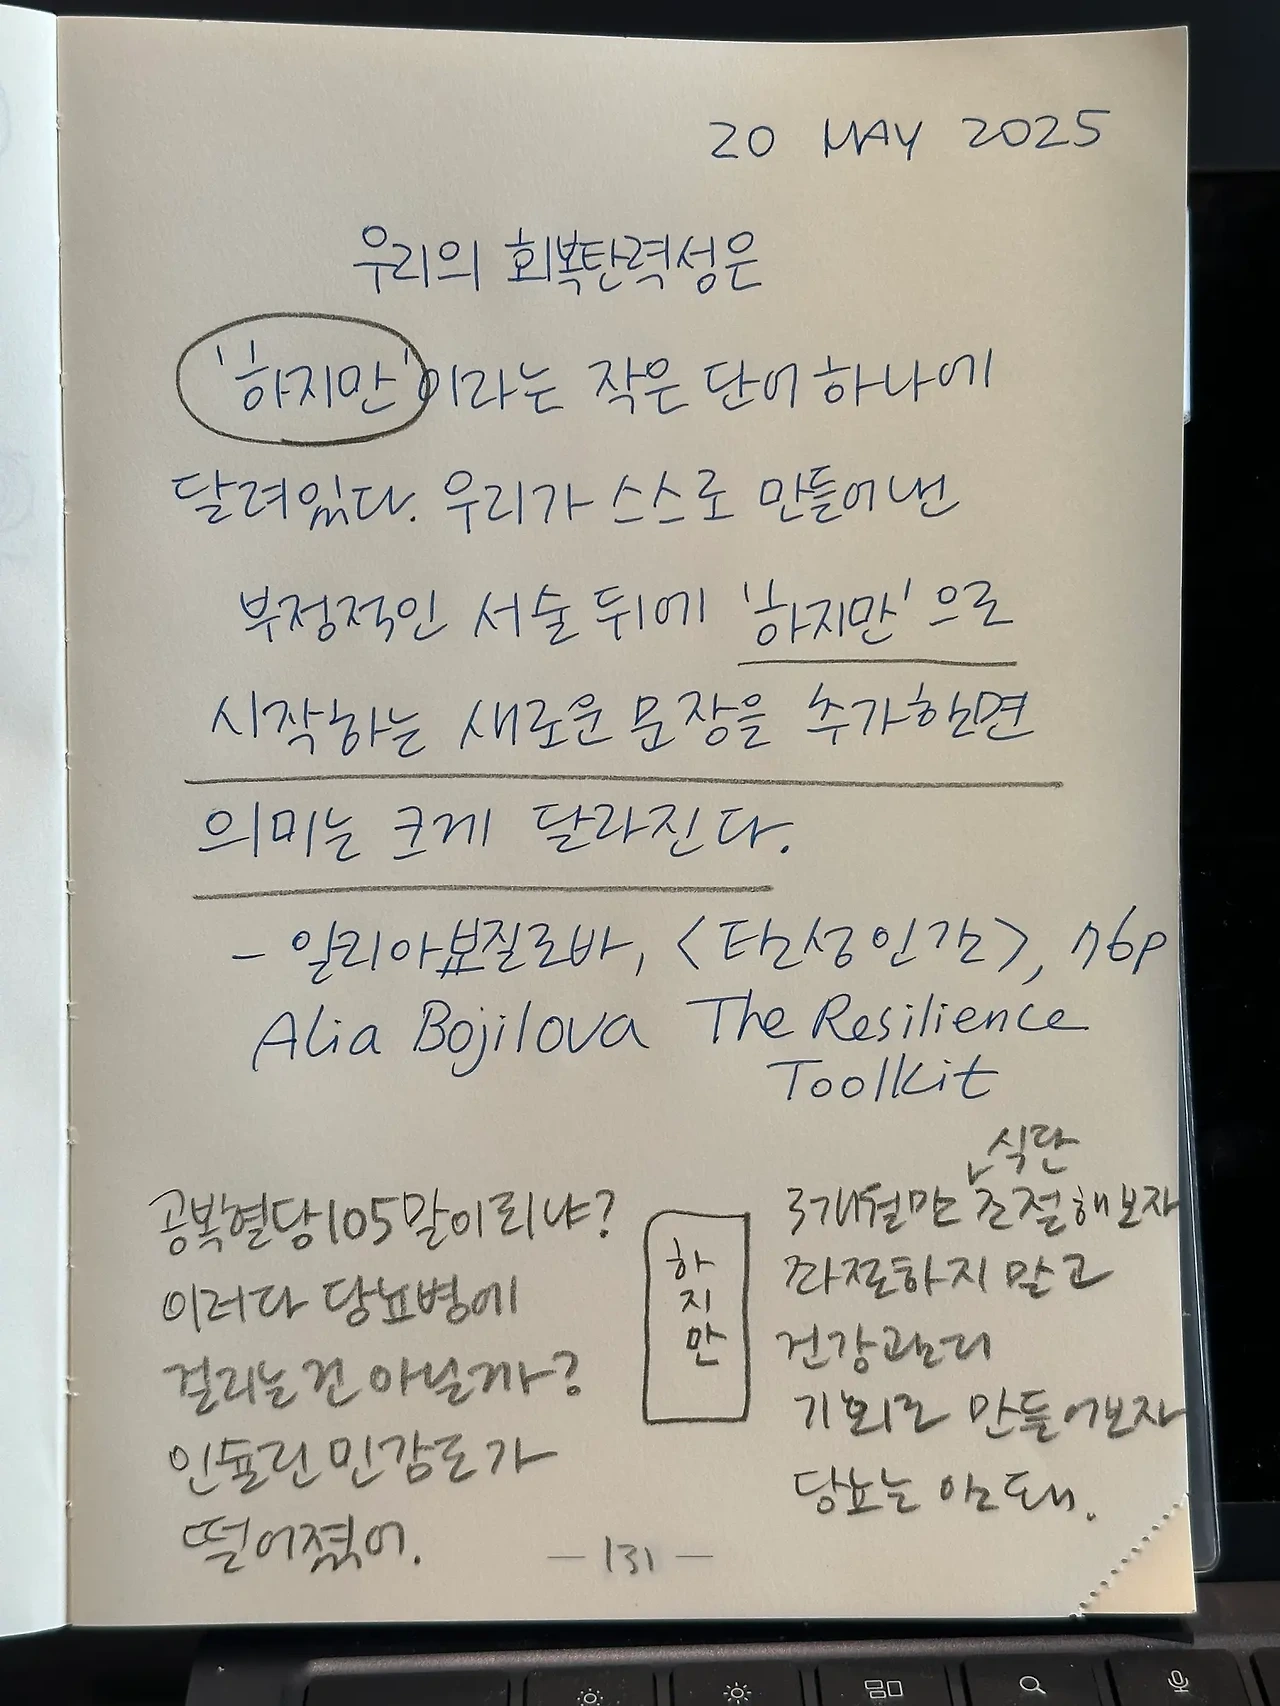 20 MAY 2025
우리의 회복탄력성은
'하지만'이라는 작은 단어 하나에
달려있다. 우리가 스스로 만들어낸
부정적인 서술 뒤에 '하지만'으로
시작하는 새로운 문장을 추가하면
의미는 크게 달라진다.
- 알리아 보질로바, <탄성인간>, 76p
Alia Bojilova The Resilience
Toolkit
공복혈당 105 말이 되냐?
이러다 당뇨병에
걸리는 건 아닐까?
인슐린 민감도가
떨어졌어.
하
지
만
식단
3개월만 조절해보자
좌절하지 말고
건강관리
기회로 만들어보자
당뇨는 안돼.
- 131 -